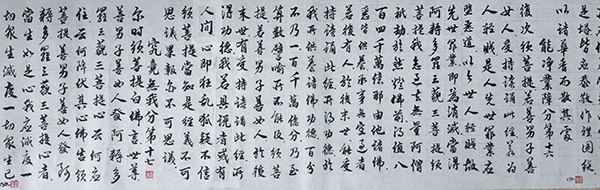 是塔皆應恭敬作禮圍繞
以諸華香而散其處
能淨業障分第十六
復次須菩提善男子善
女人受持讀誦此經若為
人輕賤是人先世罪業應
墮惡道以今世人輕賤故
先世罪業即為消滅當得
阿耨多羅三藐三菩提須
菩提我念過去無量阿僧
祇劫於然燈佛前得值八
百四千萬億那由他諸佛
悉皆供養承事無空過者
若復有人於後末世能受
持讀誦此經所得功德於
我所供養諸佛功德百分
不及一百千萬億分乃至
算數譬喻所不能及須菩
提若善男子善女人於後
末世有受持讀誦此經所
得功德我若具說者或有
人聞心即狂亂狐疑不信
須菩提當知是經義不可
思議果報亦不可思議
究竟無我分第十七
爾時須菩提白佛言世尊
善男子善女人發阿耨多
羅三藐三菩提心云何應
住云何降伏其心佛告須
菩提善男子善女人發阿
耨多羅三藐三菩提心者
當生如是心我應滅度一
切眾生滅度一切眾生已